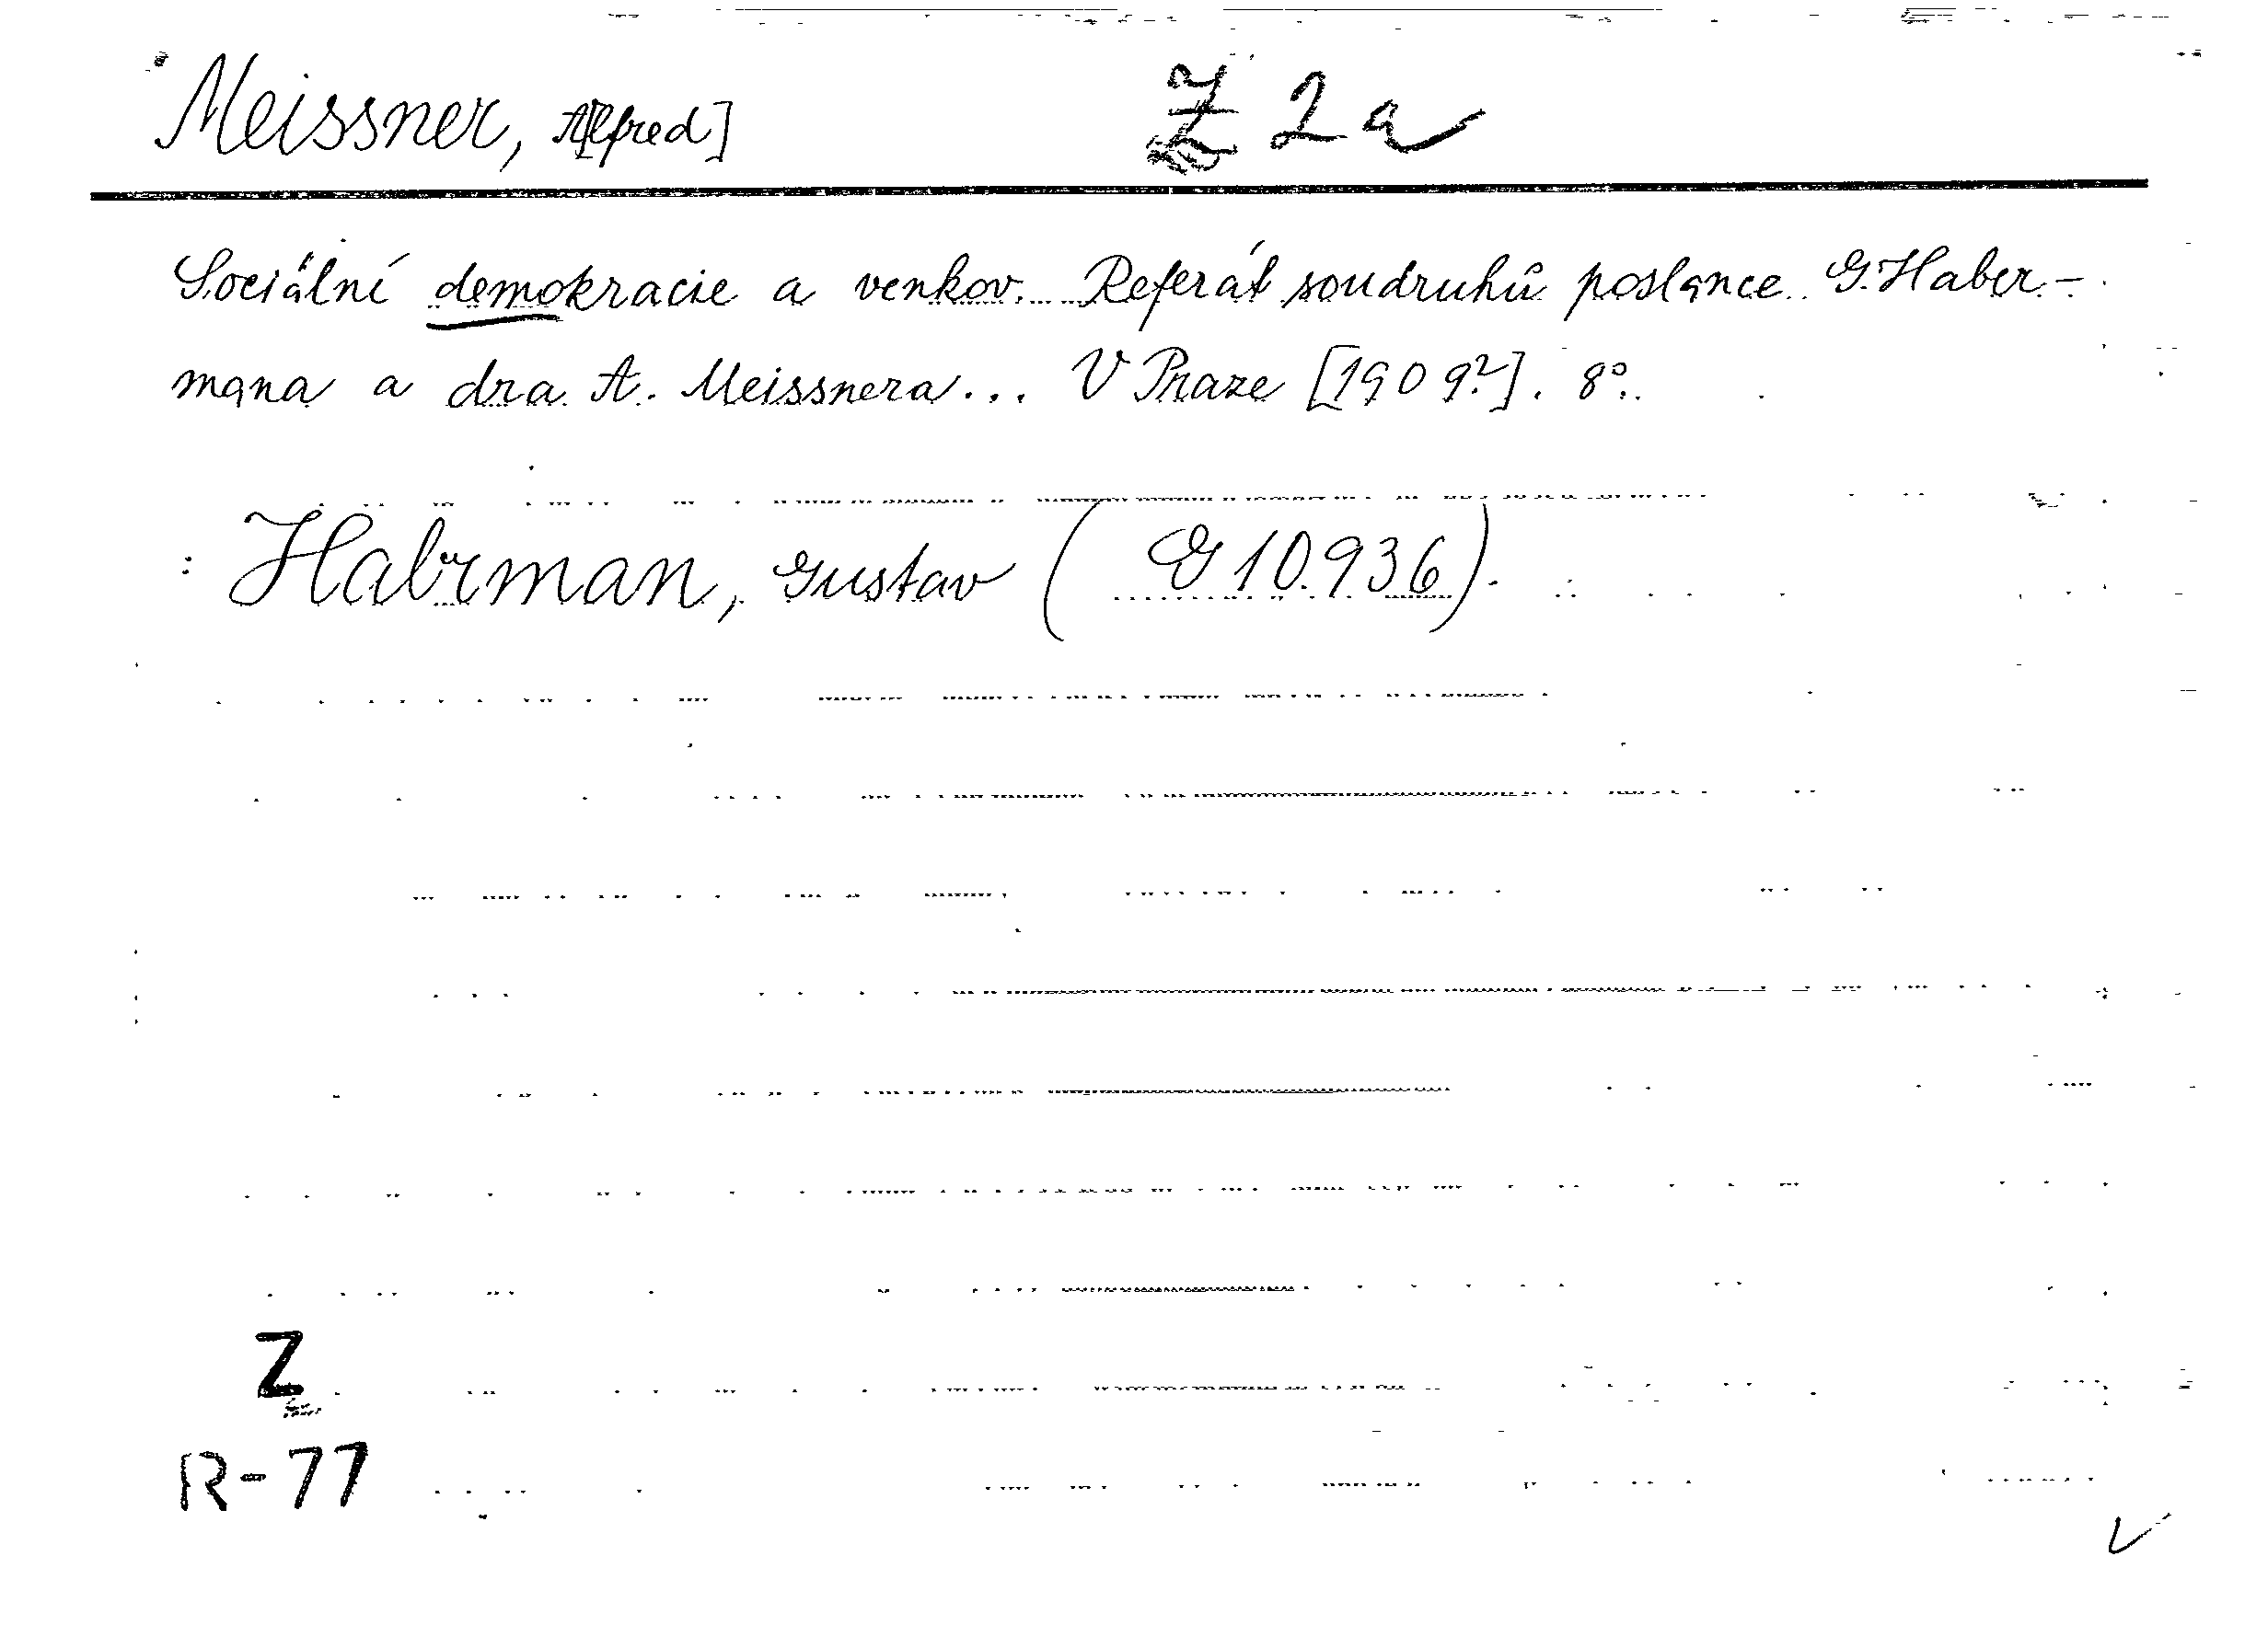 Meissner, A[lfred] Z 2a
Sociální demokracie a venkov. Referát soudruhů poslance G. Haber-
mana a dra A. Meissnera... V Praze [1909?]. 8°.
: Habrman, Gustav (G 10.936).
Z
R-77